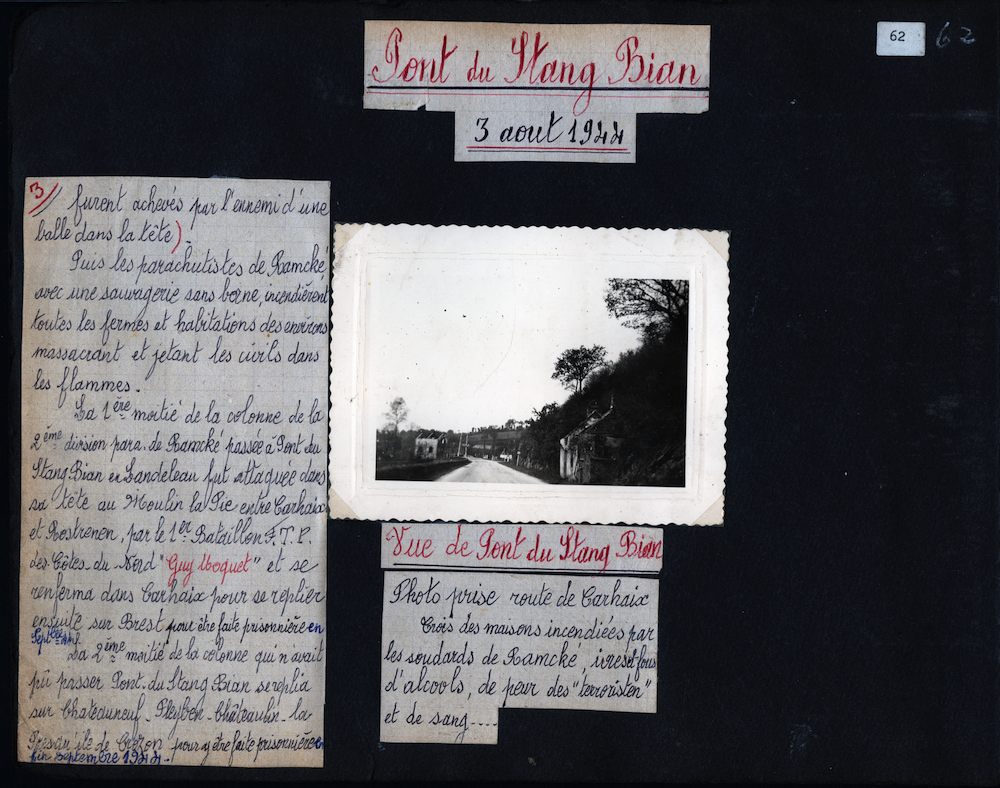 62
62
Pont du Stang Bian
3 aout 1944
3//
furent achevés par l'ennemi d'une
balle dans la tête).
Puis les parachutistes de Ramcké
avec une sauvagerie sans borne, incendièrent
toutes les fermes et habitations des environs
massacrant et jetant les civils dans
les flammes.
La 1ère moitié de la colonne de la
2ème division para. de Ramcké passée à Pont du
Stang Bian en Landeleau fut attaquée dans
sa tête au Moulin la Pie entre Carhaix
et Rostrenen, par le 1er Bataillon F.T.P.
des Côtes-du-Nord "Guy Moquet" et se
renferma dans Carhaix pour se replier
ensuite sur Brest pour être faite prisonnière en
Septbre 1944
La 2ème moitié de la colonne qui n'avait
pû passer Pont-du Stang Bian se replia
sur Chateauneuf - Pleyben - Châteaulin - la
Presqu'île de Crozon pour y être faite prisonnière en
fin septembre 1944.
Vue de Pont du Stang Bian
Photo prise route de Carhaix
Trois des maisons incendiées par
les soudards de Ramcké, ivres et fous
d'alcools, de peur des "terroristen"
et de sang....